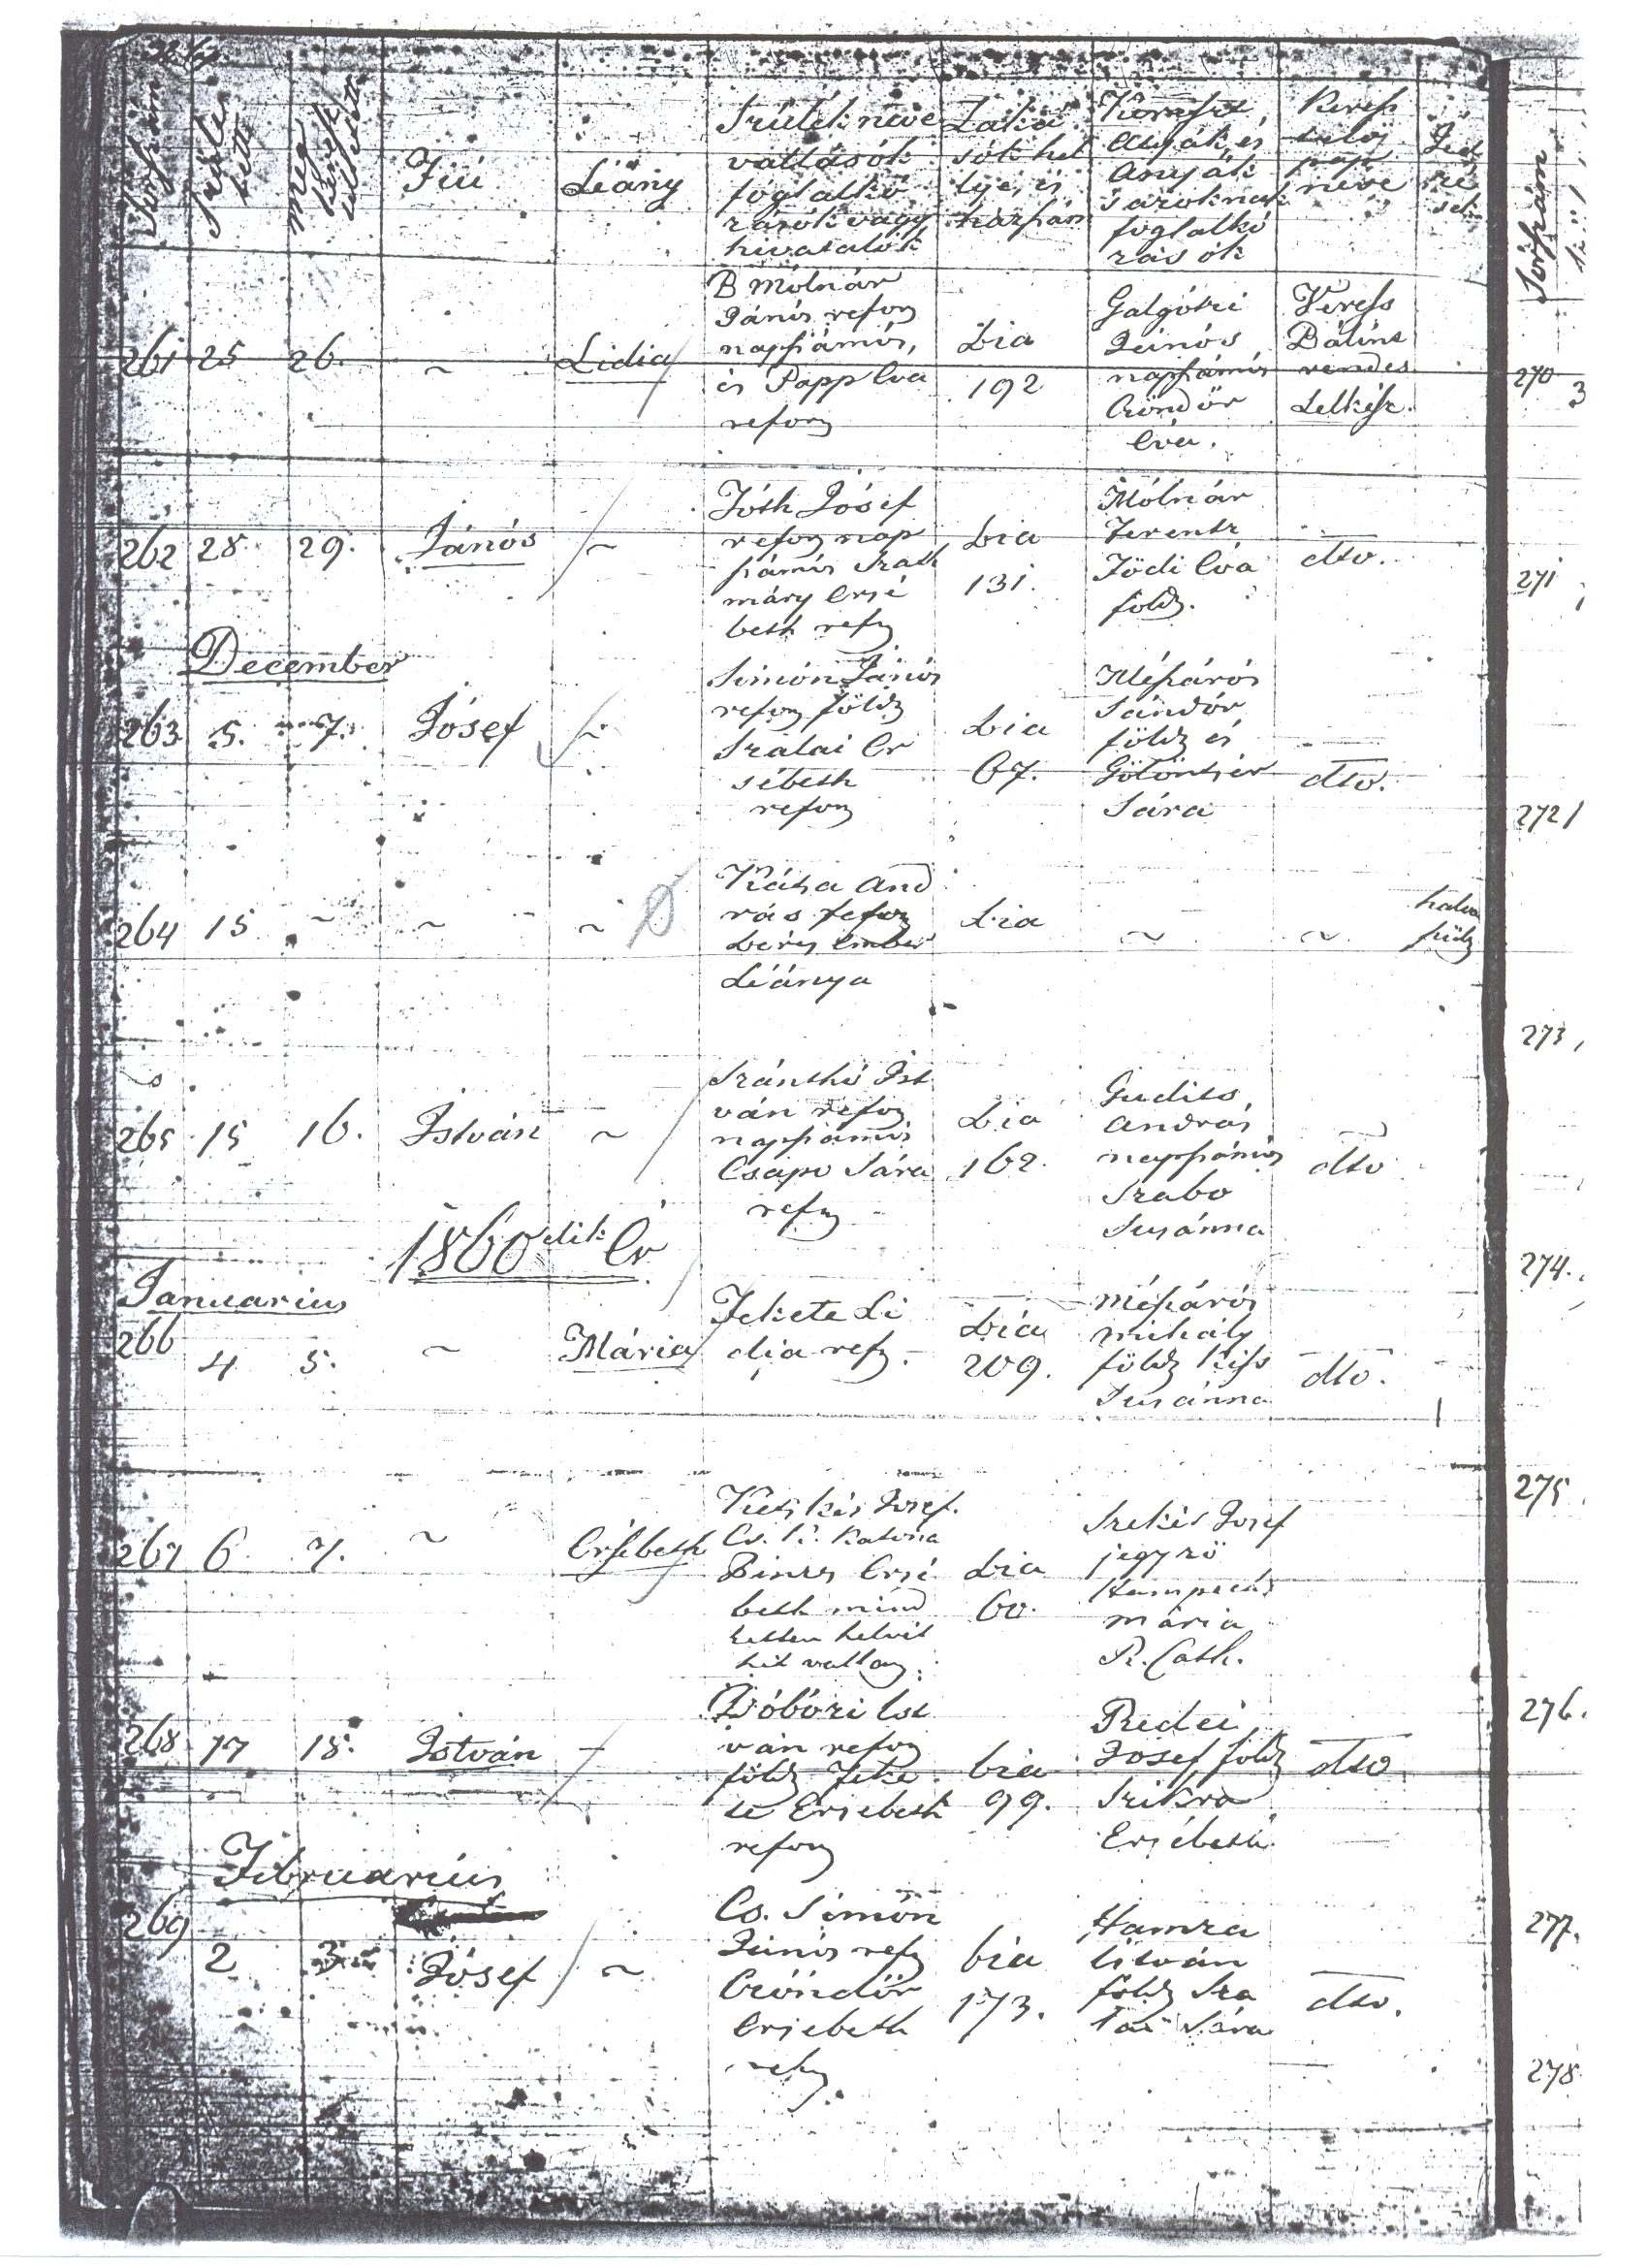 Fiú
Leány
Szülék neve
vallásók
foglalko
zásók vagy
hivatalók
Laká
sók hel
lye, és
házszám
Kereszt
Atyák, és
Anyák
s azoknak
foglalko
zásók
Keresz
telő
pap
neve
261 25 26. ~ Lidia
B Mólnár
Jánós reform
napszámós,
és Papp Eva
reform
bia
192
Galgótzi
Jánós
napszámós
Csöndör
Éva.
Veress
Bálint
rendes
Lelkész.
262 28. 29. Jánós ~
Tóth Jósef
reform nap
számós Szath
máry Ersé
beth refm
bia
131.
Mólnár
Ferentz
Födi Éva
földm.
dto.
December
263 5. 7. Jósef ~
Simón Jánós
reform földm
Szalai Er
sébeth
reform
bia
67.
Mészárós
Sándór
földm és
Sára
dto.
264 15 ~ ~ ~
Kátsa And
rás reform
béres ember
Léánya
bia
~ ~
halva
265 15 16. István ~
Szánthó Ist
ván reform
napszámós
Csapo Sára
refm
bia
162.
Gudits
András
napszámós
Szabo
Susánna
dto
1860dik Év
Januarius
266
4 5. ~ Mária
Fekete Li
dia refm.
bia
209.
Mészárós
Mihály
földm Kiss
Susánna
dto.
267 6 7. ~ Ersébeth
Ketskés Josef.
Cs. K. Katona
Bintzs Ersé
beth mind
ketten helvét
hit vallay.
bia
60.
Szekés Josef
jegyző
Mária
R. Cath.
268 17 18. István ~
Bóbóri Ist
ván reform
földm Feke
te Ersebeth
reform
bia
99.
Redei
Josef földm
Szikra
Ersébeth
dto
Februarius
269
2 3 Jósef ~
Cs. Simón
Jánós refm
Csöndör
Ersebeth
refm
bia
173.
Hamza
István
földm Sza
lai Sára
dto.
Sórszám
270
3
271
272
273
274.
275
276.
277.
278